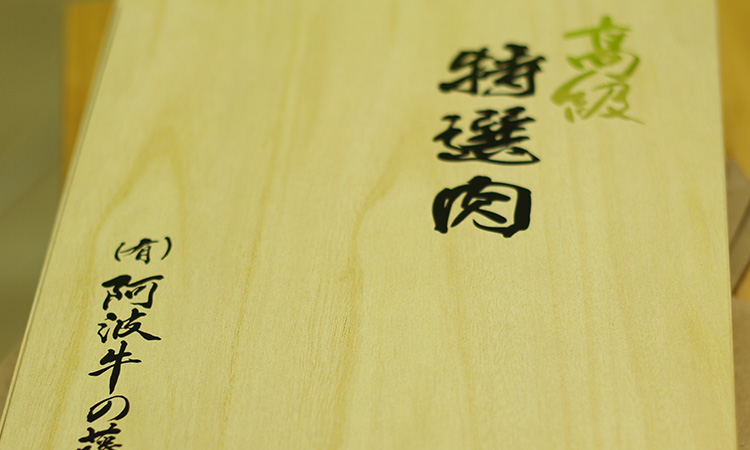 高級
特選肉
(有)阿波牛の